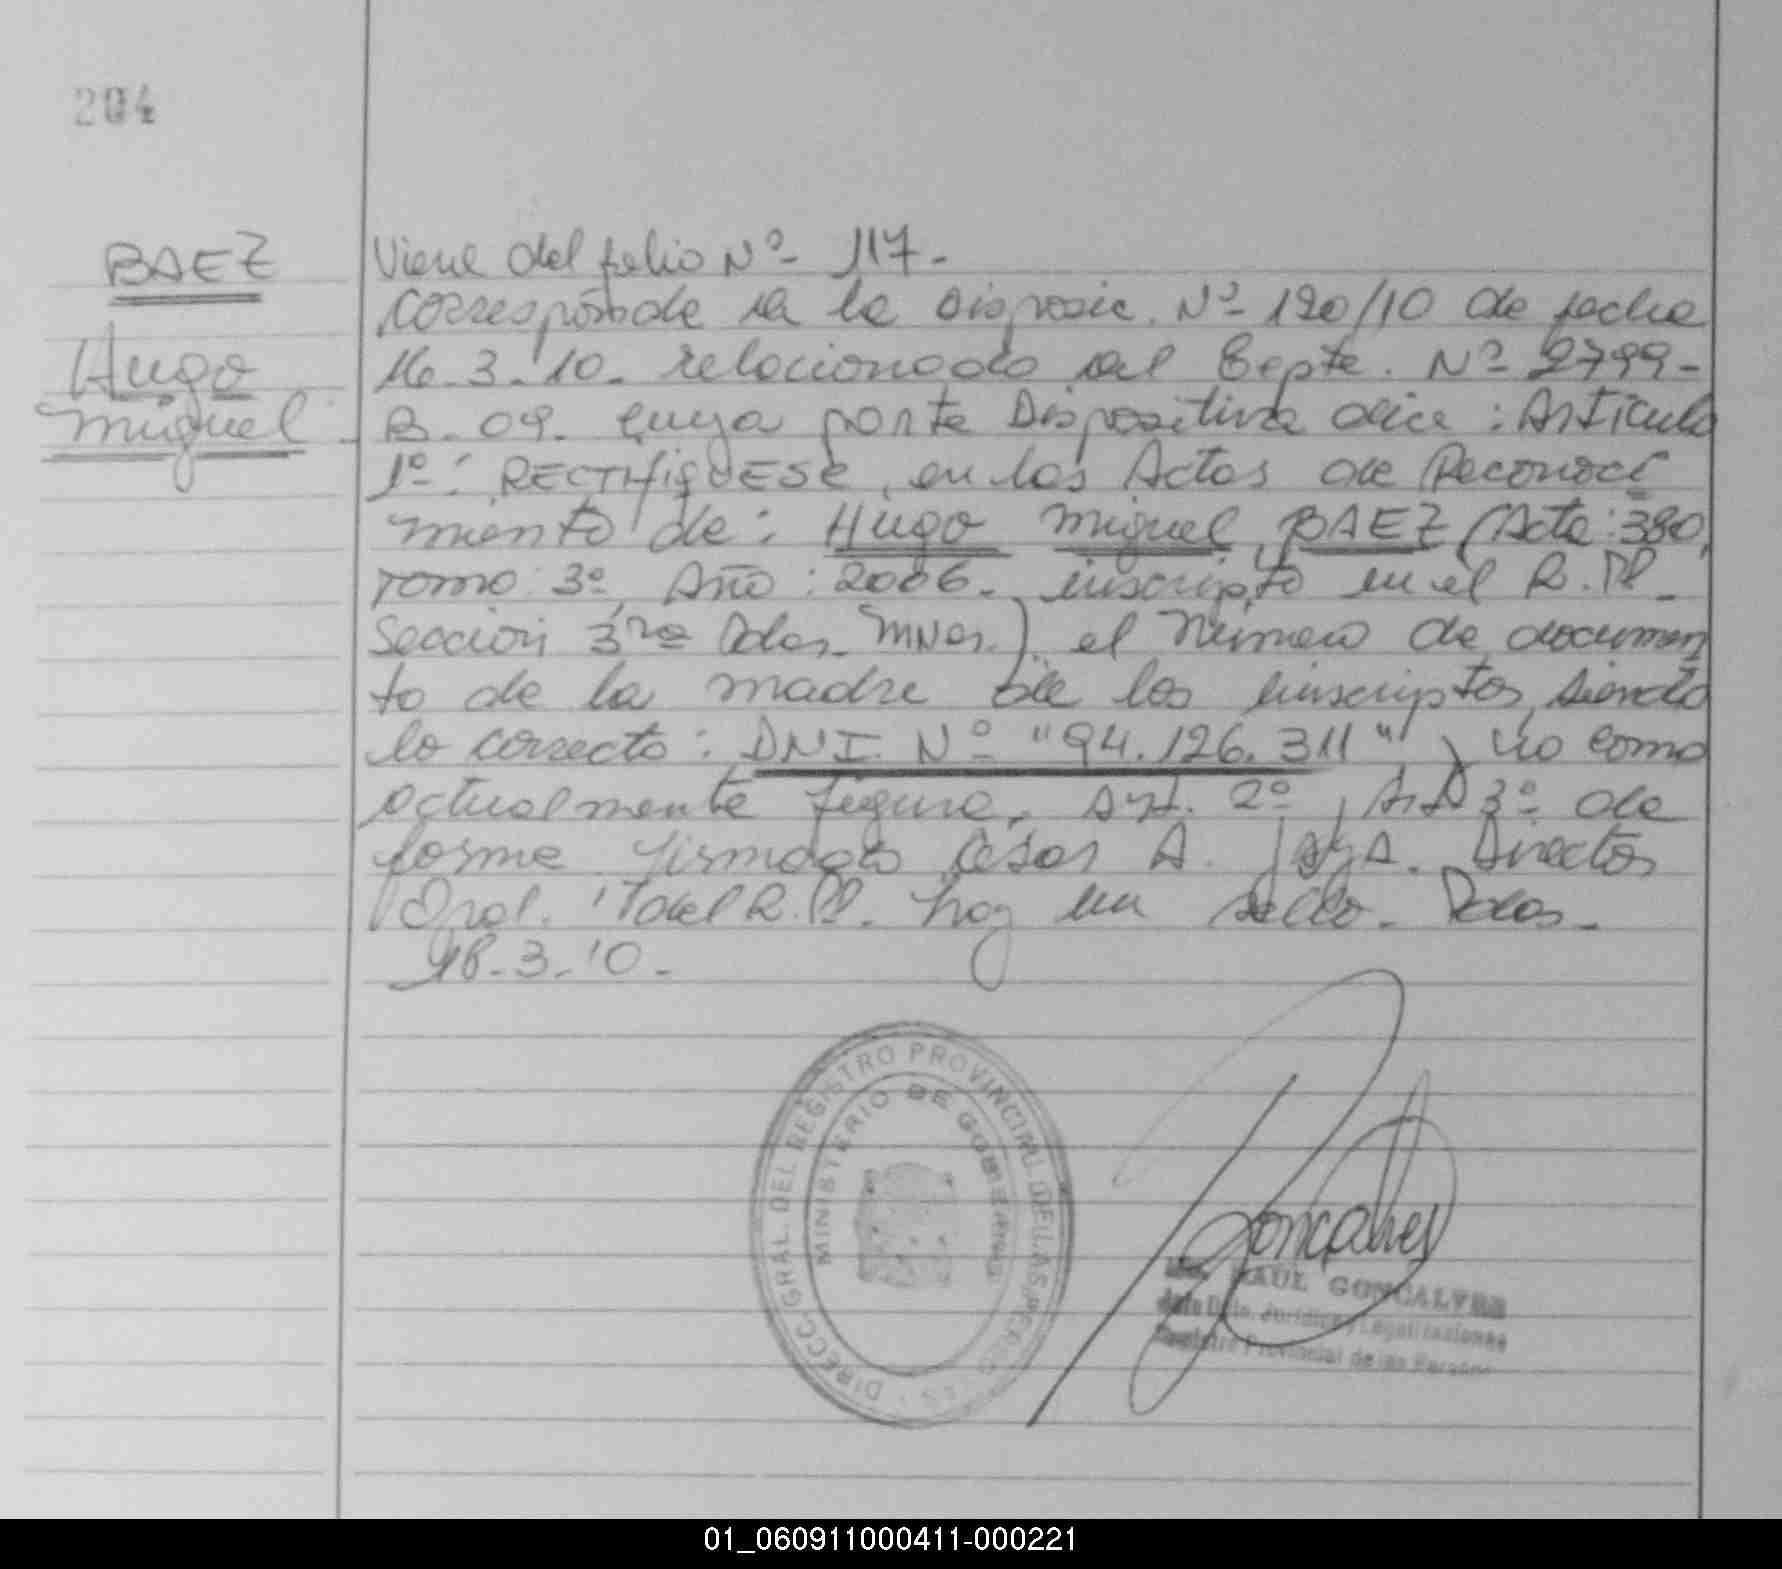 204
BAEZ
Hugo
Miguel
Viene del folio Nº- 117.-
Corresponde a la Disposic. Nº- 120/10 de fecha
16.3.10. relacionado al Expte. Nº 2799-
B-09. cuya parte Dispositiva dice: Articulo
1º: RECTIFIQUESE, en las Actas de Reconoci
miento de: Hugo Miguel BAEZ (Acta: 380,
Tomo: 3º, Año: 2006- inscripto en el R.P.P.-
Sección 3ra Pdas. Mnes.) el Número de documen
to de la madre de los inscriptos, siendo
lo correcto: DNI. Nº "94.126.311" y no como
actualmente figura. Art. 2º, Art 3º de
forme firmado Cesar A. Director
Gral. del R.P.P. hay un sello. Pdas-
18.3.10.-
DIRECC. GRAL. DEL REGISTRO PROVINCIAL DE LAS PERSO
MINISTERIO DE GOBIERNO
Goncalves
RAUL GONCALVES
Jefe Dpto. Jurídico y Legalizaciones
Registro Provincial de las Personas
01_060911000411-000221